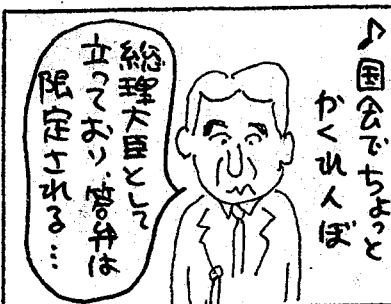 ♪国会でちょっと
かくれんぼ
総理大臣として
立っており、答弁は
限定される…